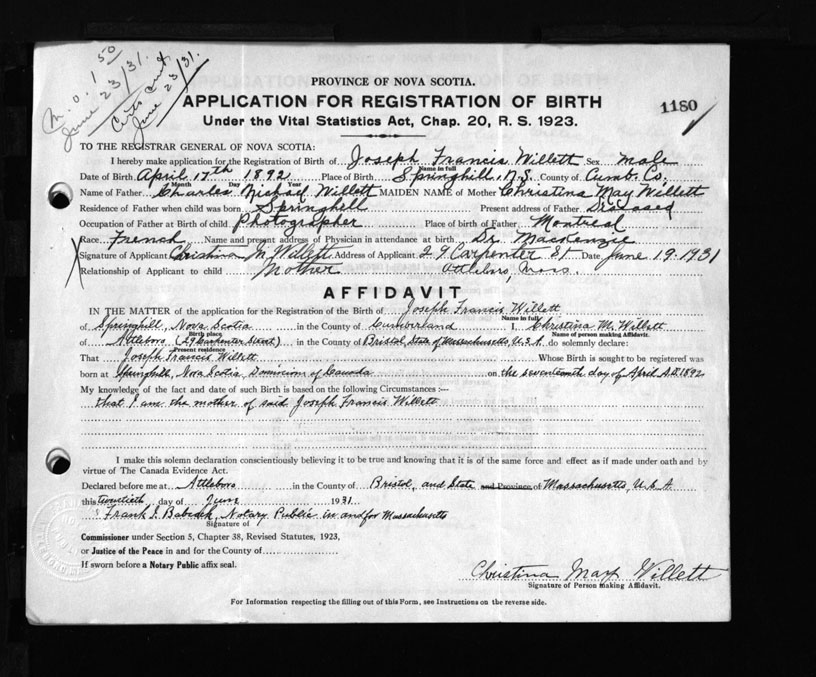 M.O. 1 50
June 23/31.
Certs sent
June 23/31.
PROVINCE OF NOVA SCOTIA.
APPLICATION FOR REGISTRATION OF BIRTH
1180
Under the Vital Statistics Act, Chap. 20, R. S. 1923.
TO THE REGISTRAR GENERAL OF NOVA SCOTIA:
I hereby make application for the Registration of Birth of Joseph Francis Willett Sex male
Name in full
Date of Birth April 17th 1892 Place of Birth Springhill, N.S. County of Cumb. Co.
Month Day Year
Name of Father Charles Michael Willett MAIDEN NAME of Mother Christina May Willett
Residence of Father when child was born Springhill Present address of Father Diseased
Occupation of Father at Birth of child Photographer Place of birth of Father Montreal
Race French Name and present address of Physician in attendance at birth Dr. MacKenzie
Signature of Applicant Christina M. Willett Address of Applicant 29 Carpenter St Date June 19. 1931
Relationship of Applicant to child Mother Attleboro, Mass.
AFFIDAVIT
IN THE MATTER of the application for the Registration of the Birth of Joseph Francis Willett
Name in full
of Springhill, Nova Scotia in the County of Cumberland I, Christina M. Willett
Birth place Name of person making Affidavit.
of Attleboro (29 Carpenter Street) in the County of Bristol, State of Massachusetts, U.S.A. do solemnly declare:
Present residence
That Joseph Francis Willett Whose Birth is sought to be registered was
born at Springhill, Nova Scotia Dominion of Canada on the seventeenth day of April A.D. 1892
My knowledge of the fact and date of such Birth is based on the following Circumstances :—
that I am the mother of said Joseph Francis Willett
I make this solemn declaration conscientiously believing it to be true and knowing that it is of the same force and effect as if made under oath and by
virtue of The Canada Evidence Act.
Declared before me at Attleboro in the County of Bristol, and State and Province of Massachusetts, U.S.A
this twentieth day of June 1931
Frank I. Babcock, Notary Public in and for Massachusetts
Signature of
Commissioner under Section 5, Chapter 38, Revised Statutes, 1923,
or Justice of the Peace in and for the County of
If sworn before a Notary Public affix seal.
Christina May Willett
Signature of Person making Affidavit.
For Information respecting the filling out of this Form, see Instructions on the reverse side.